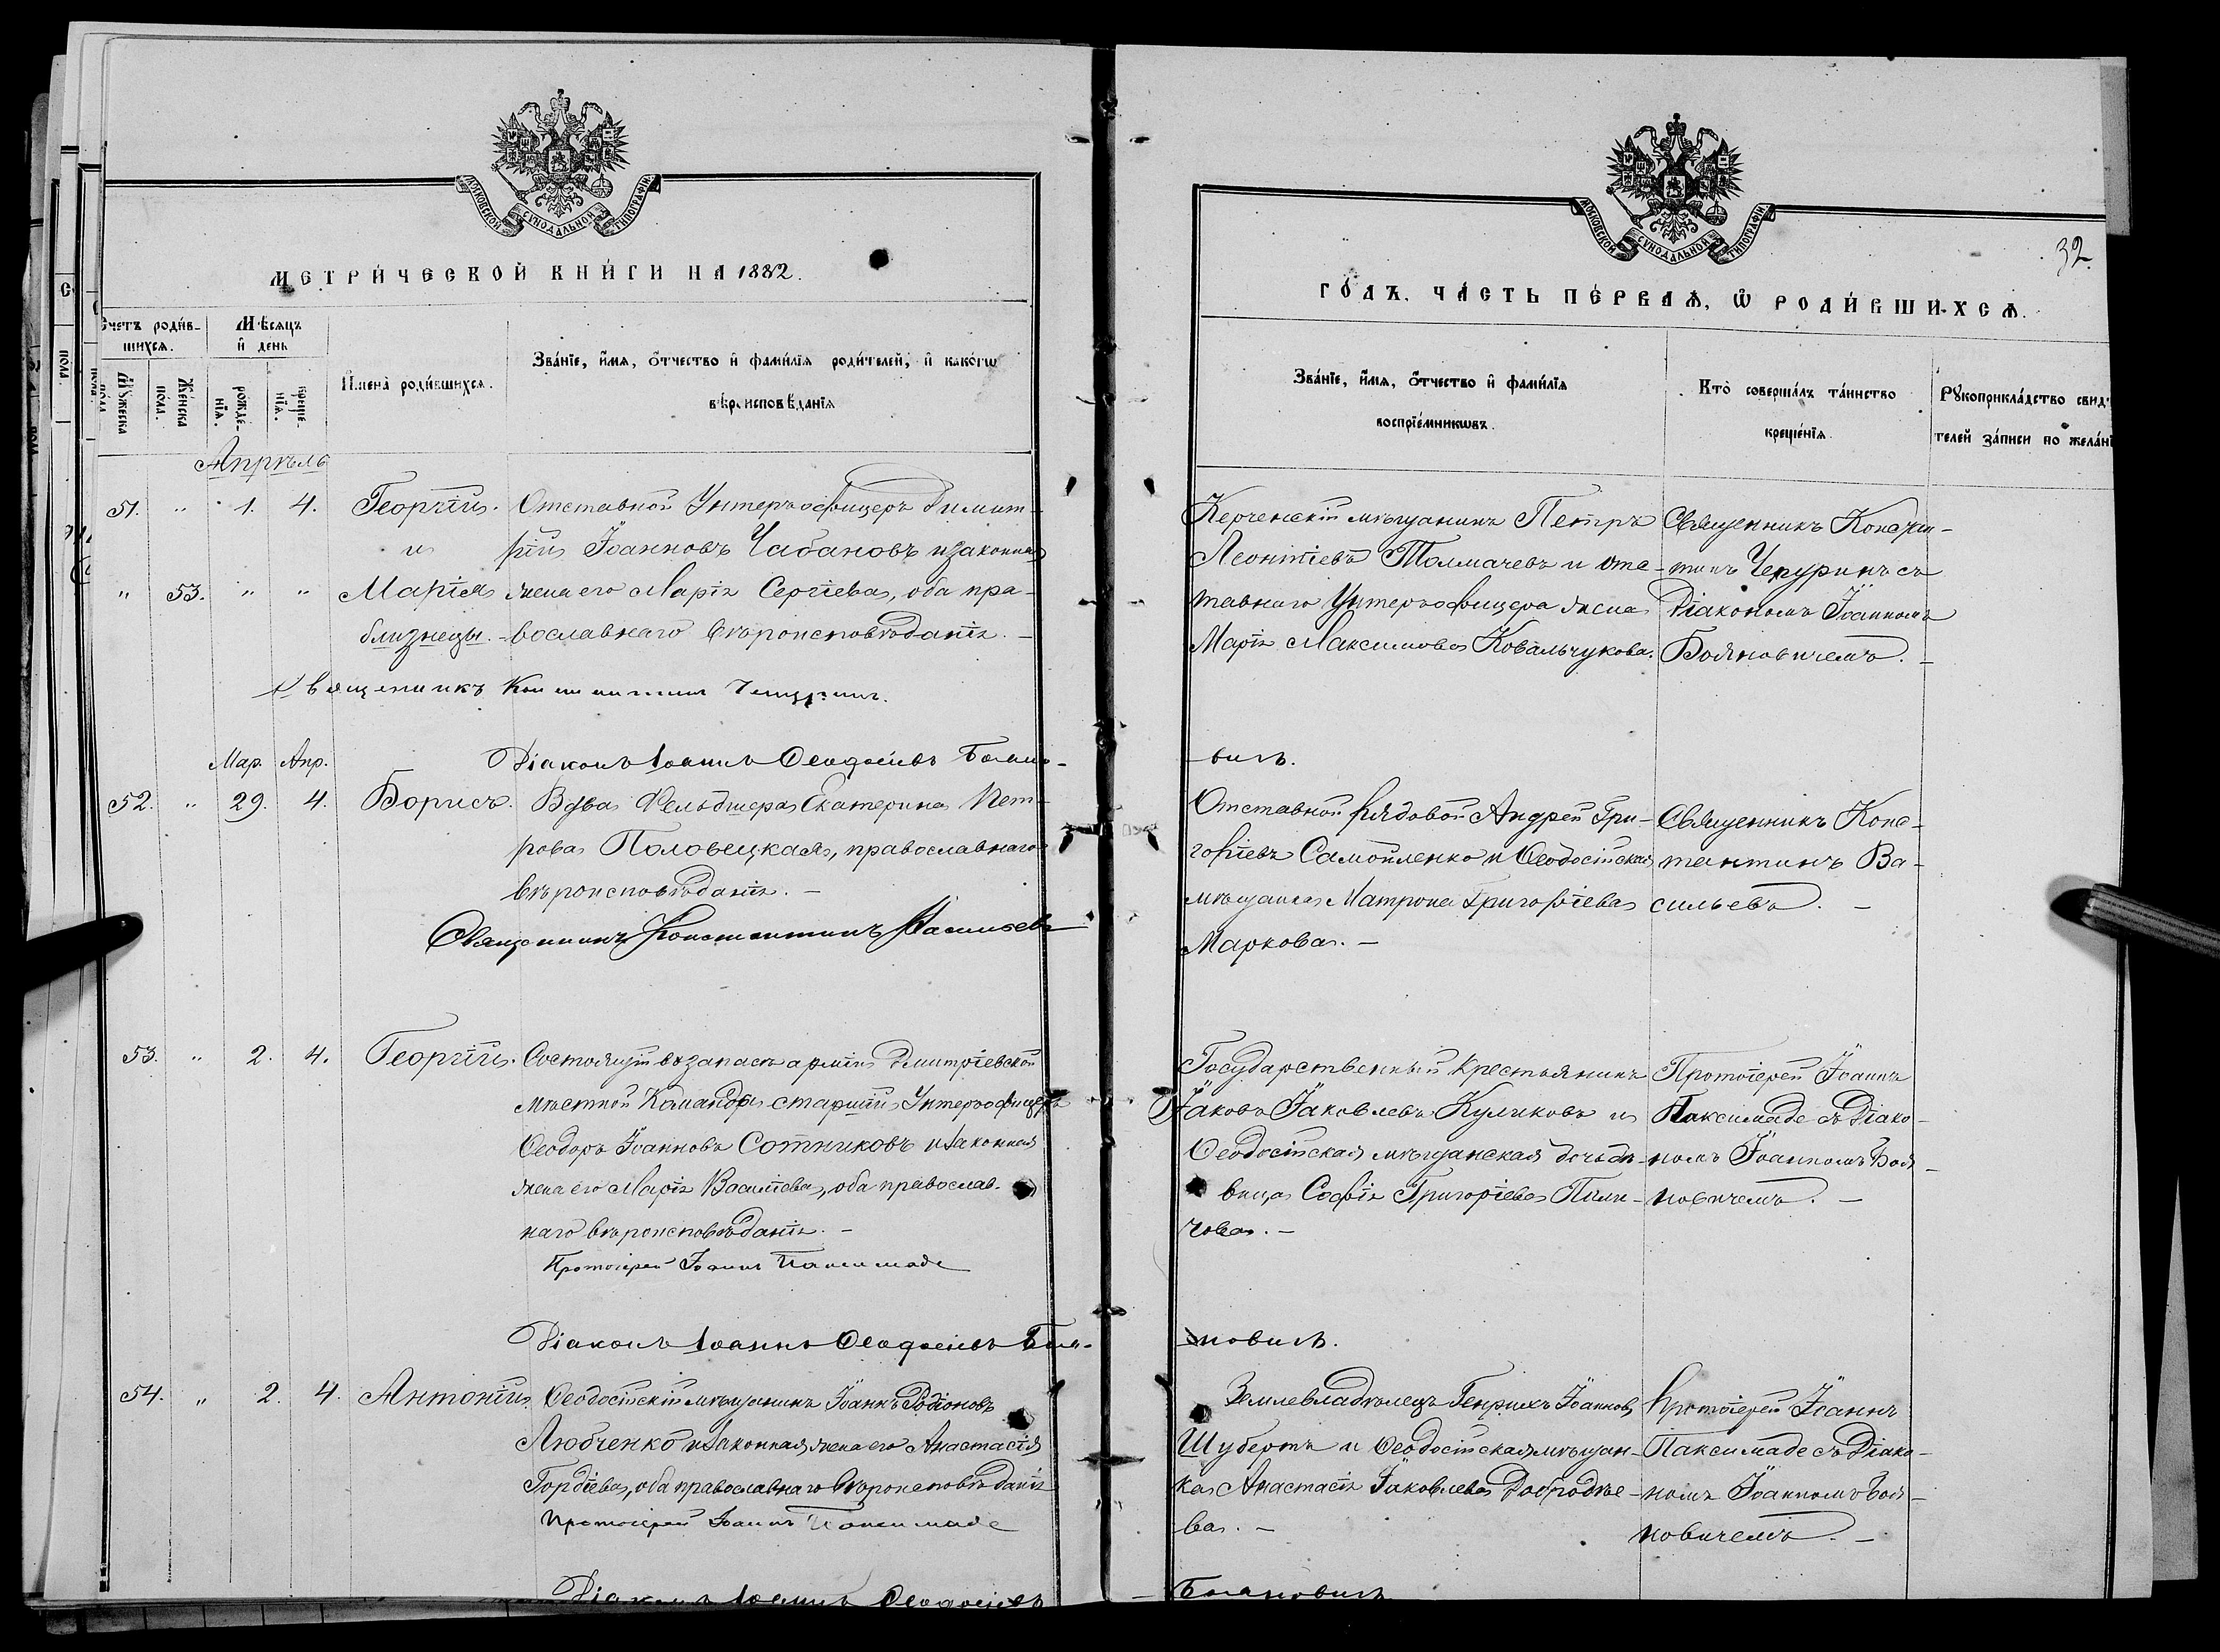 МОСКОВСКОЙ СѴНОДАЛЬНОЙ ТИПОГРАФІИ
МЕТРИ́ЧЕСКОЙ КНИ́ГИ НА 1882.
Счетъ роди́вшихся.
Мѣсяцъ и́ день
Имена̀ роди́вшихся.
Зва́нїе, и́мя, ѻ҆́тчество и҆ фами́лїя роди́телей, и҆ како́гѡ
вѣроисповѣ́данїя
Мꙋжеска по́ла.
Же́нска по́ла.
рожде́нїя.
креще́нїя.
Апрѣль
51. " 1. 4. Георгій. Отставной Унтеръ-офицеръ Димит-
и рій Іоанновъ Чабановъ и законная
" 53. " " Марія жена его Марія Сергіева, оба пра-
близнецы. вославнаго вѣроисповѣданія. –
Священникъ Константинъ Чепуринъ.
Діаконъ Іоаннъ Ѳеодосіевъ Бояно-
Мар. Апр.
52. " 29. 4. Борисъ. Вдова Фельдшера Екатерина Пет-
рова Половецкая, православнаго
вѣроисповѣданія. –
Священникъ Константинъ Васильевъ
53. " 2. 4. Георгій. Состоящій въ запасѣ арміи Дмитріевской
мѣстной Команды старшій Унтеръ-офицеръ
Ѳеодоръ Іоанновъ Сотниковъ и законная
жена его Марія Васильева, оба православ-
наго вѣроисповѣданія. –
Протоіерей Іоаннъ Паксимаде
Діаконъ Іоаннъ Ѳеодосіевъ Боя-
54. " 2. 4. Антоній. Ѳеодосійскій мѣщанинъ Іоаннъ Родіоновъ
Любченко и законная жена его Анастасія
Гордіева, оба православнаго вѣроисповѣданія
Протоіерей Іоаннъ Паксимаде
Діаконъ Іоаннъ Ѳеодосіевъ
МОСКОВСКОЙ СѴНОДАЛЬНОЙ ТИПОГРАФІИ
32.
ГО́ДЪ. ЧА́СТЬ ПЕ́РВАѦ, Ѡ РОДИ́ВШИХСѦ.
Зва́нїе, и́мя, ѻ҆́тчество и҆ фами́лїя
воспрїе́мникѡвъ.
Кто̀ соверша́лъ та́инство
креще́нїя
Рꙋкоприкла́дство свид
телей за́писи по жела́нї
Керченскій мѣщанинъ Петръ
Леонтіевъ Толмачевъ и отс-
тавнаго Унтеръ-офицера жена
Марія Максимова Ковальчукова.
Священникъ Констан-
тинъ Чепуринъ съ
Діакономъ Іоанномъ
Бояновичемъ. –
вичъ.
Отставной рядовой Андрей Гри-
горіевъ Самойленко и Ѳеодосійская
мѣщанка Матрона Григоріева
Маркова. –
Священникъ Конс-
тантинъ Ва-
сильевъ. –
Государственный крестьянинъ
Іаковъ Іаковлевъ Куликовъ и
Ѳеодосійская мѣщанская дочь дѣ-
вица Софія Григоріева
чова. –
Протоіерей Іоаннъ
Паксимаде съ Діако-
номъ Іоанномъ Боя-
новичемъ. –
новичъ.
Землевладѣлецъ Генрихъ Іоанновъ
Шубертъ и Ѳеодосійская мѣщан-
ка Анастасія Іаковлева Добродѣе-
ва. –
Протоіерей Іоаннъ
Паксимаде съ Діако-
номъ Іоанномъ Боя-
новичемъ. –
Бояновичъ